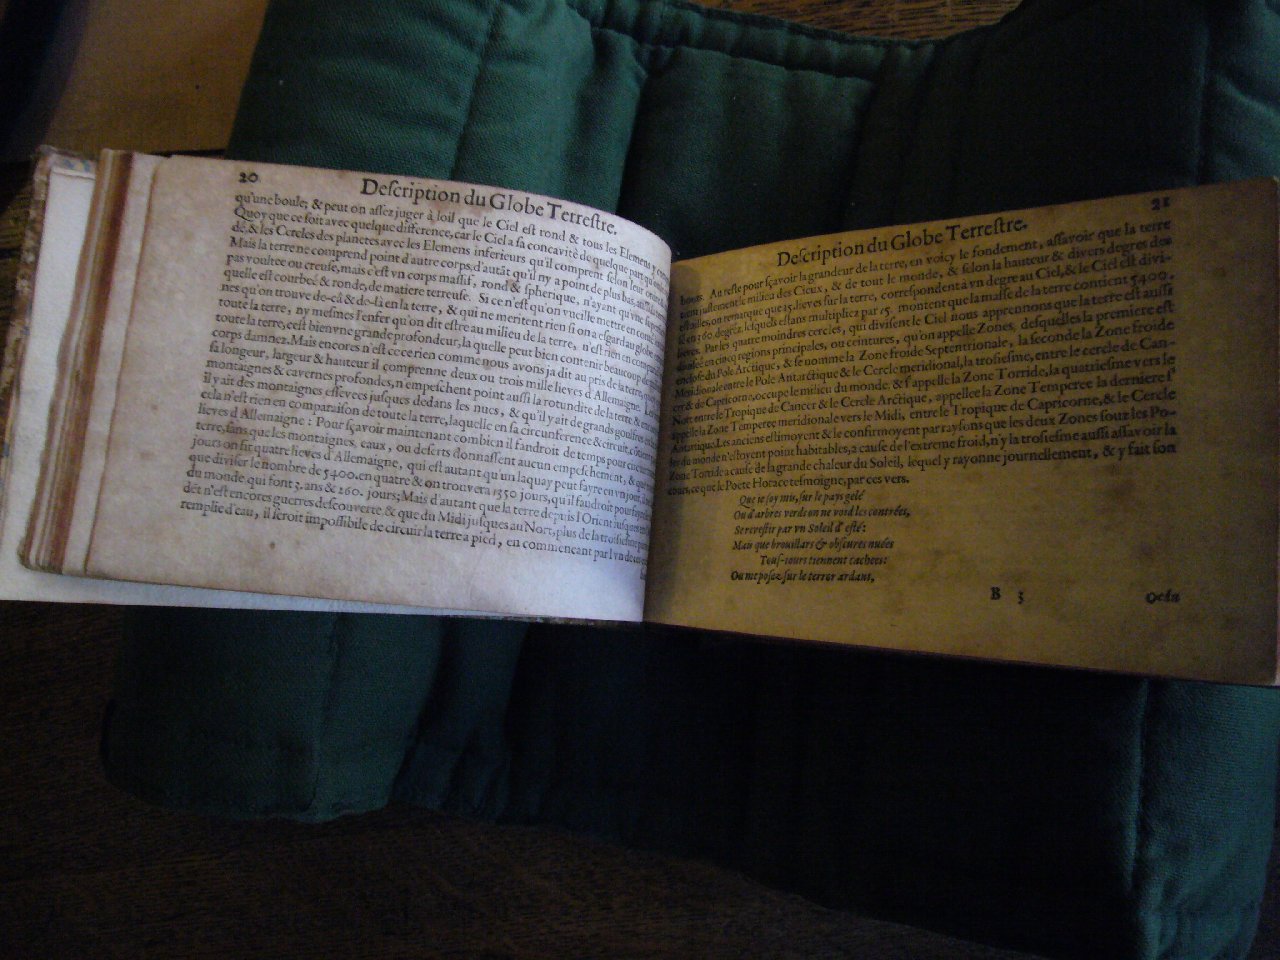 20
Deſcription du Globe Terreſtre.
qu'une boule; & peut on aſſez juger à loil que le Ciel eſt rond & tous les Elemens y
Quoy que ce ſoit avec quelque difference, car le Ciel a ſa concavité de quelque part qu'on
& les Cercles des planetes avec les Elemens inferieurs qu'il comprent ſelon leur
Mais la terre ne comprend point d'autre corps, d'autāt qu'il n'y a point de plus bas, auſſi n'eſt
pas voultee ou creuſe, mais c'eſt vn corps maſſif, rond & ſpherique, n'ayant qu'vne ſuperfice
quelle eſt courbeē & ronde, de matiere terreuſe. Si ce n'eſt qu'on vueille mettre en conte
nes qu'on trouve de-cā & de-lā en la terre, & qui ne meritent rien ſi on a eſgard au globe
toute la terre, ny meſmes l'enfer qu'on dit eſtre au milieu de la terre, n'eſt rien en
toute la terre, c'eſt bien vne grande profondeur, la quelle peut bien contenir beaucoup de
corps damnez. Mais encores n'eſt ce ce rien comme nous avons ja dit au pris de la terre,
ſa longeur, largeur & hauteur il comprenne deux ou trois mille lieves d'Allemaigne.
montaignes & cavernes profondes, n'empeſchent point auſſi la rotundite de la terre &
il y ait des montaignes eſlevees juſques dedans les nues, & qu'il y ait de grands goulfres
cela n'eſt rien en comparaiſon de toute la terre, laquelle en ſa circunference & circuit,
lieves d'Allemaigne: Pour ſçavoir maintenant combien il faudroit de temps pour
terre, ſans que les montaignes, eaux, ou deſerts donnaſſent aucun empeſchement, &
jours on fir quatre lieves d'Allemaigne, qui eſt autant qu'un laquay peut fayre en vn jour,
que diviſer le nombre de 5400. en quatre & on trouvera 1350 jours, qu'il faudroit pour
du monde qui font 3. ans & 260. jours; Mais d'autant que la terre depuis l'Orient juſques en
dēt n'eſt encores guerres deſcouverte & que du Midi juſques au Nort, plus de la troiſieſme
remplie d'eau, il ſeroit impoſſibile de circuir la terre a pied, en commençant par l'vn de
21
Deſcription du Globe Terreſtre.
bouts. Au reſte pour ſçavoir la grandeur de la terre, en voicy le fondement, aſſavoir que la terre
juſtement le milieu des Cieux, & de tout le monde, & ſelon la hauteur & divers degres des
eſtoilles, on remarque que 15. lieves ſur la terre, correſpondent à vn degre au Ciel, & le Ciel eſt divi-
ſé en 360. degrēz, leſquels eſtans multipliez par 15 montent que la maſſe de la terre contient 5400.
lieves. Par les quatre moindres cercles, qui diviſent le Ciel nous apprennons que la terre eſt auſſi
diviſee en cinq regions principales, ou ceintures, qu'on appelle Zones, deſquelles la premiere eſt
encloſe du Pole Arctique, & ſe nomme la Zone froide Septentrionale, la ſeconde la Zone froide
Meridionale entre le Pole Antarctique & le Cercle meridional, la troſieſme, entre le cercle de Can-
cer & de Capricorne, occupe le milieu du monde, & ſ'appelle la Zone Torride, la quatrieſme vers le
Nort entre le Tropique de Cancer & le Cercle Arctique, appellee la Zone Temperee la derniere ſ'
appelle la Zone Temperee meridionale vers le Midi, entre le Tropique de Capricorne, & le Cercle
Antartique. Les anciens eſtimoyent & le confirmoyent par rayſons que les deux Zones ſouz les Po-
les du monde n'eſtoyent point habitables, a cauſe de l'extreme froid, n'y la troſieſme auſſi aſſavoir la
Zone Torride a cauſe de la grande chaleur du Soleil, lequel y rayonne journellement, & y fait ſon
cours, ce que le Poete Horace teſmoigne, par ces vers.
Que ie ſoy mis, ſur le pays gelé
Ou d'arbres verds on ne void les contrées,
Se reveſtir par vn Soleil d'eſté:
Mais que brouillars & obſcures nuées
Tous-iours tiennent cachees:
Ou me poſez ſur le terror ardans,
B 3